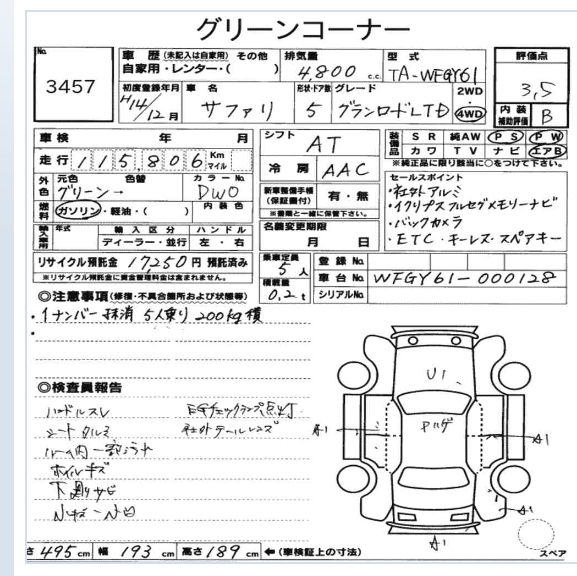 グリーンコーナー
No. 3457
車歴 (未記入は自家用) その他
自家用・レンター・( )
排気量 4,800 c.c.
型式 TA-WFGY61
評価点 3,5
初度登録年月 H14/12月
車名 サファリ
形状・ドア数 5
グレード グランロードLTD
2WD
4WD
内装補助評価 B
車検 年 月
シフト AT
装備品 SR 純AW PS PW
カワ TV ナビ エアB
※純正品に限り該当に○をつけて下さい。
走行 115,806 Km マイル
冷房 AAC
セールスポイント
・社外アルミ
・イクリプスフルセグメモリーナビ
・バックカメラ
・ETC・キーレス・スペアキー
外色 元色 色替 カラーNo.
グリーン→ DW0
新車整備手帳 (保証書付) 有・無
※書類と一緒に保管下さい。
燃料 ガソリン・軽油・( ) 内装色
名義変更期限 月 日
輸入車用 年式 輸入区分 ハンドル
ディーラー・並行 左・右
リサイクル預託金 17,250円 預託済み
※リサイクル預託金に資金管理料金は含まれません。
乗車定員 5人
積載量 0.2t
登録No.
車台No. WFGY61-000128
シリアルNo.
◎注意事項 (修復・不具合箇所および状態等)
・1ナンバー抹消 5人乗り 200kg積
◎検査員報告
ハンドルスレ EGチェックランプ点灯
シートクルミ 社外テールレンズ
ルーム内一部汚れ
ホイルキズ
下廻りサビ
U1
A1
A1
A1
A1
スペア
さ 495cm 幅 193cm 高さ 189cm ←(車検証上の寸法)